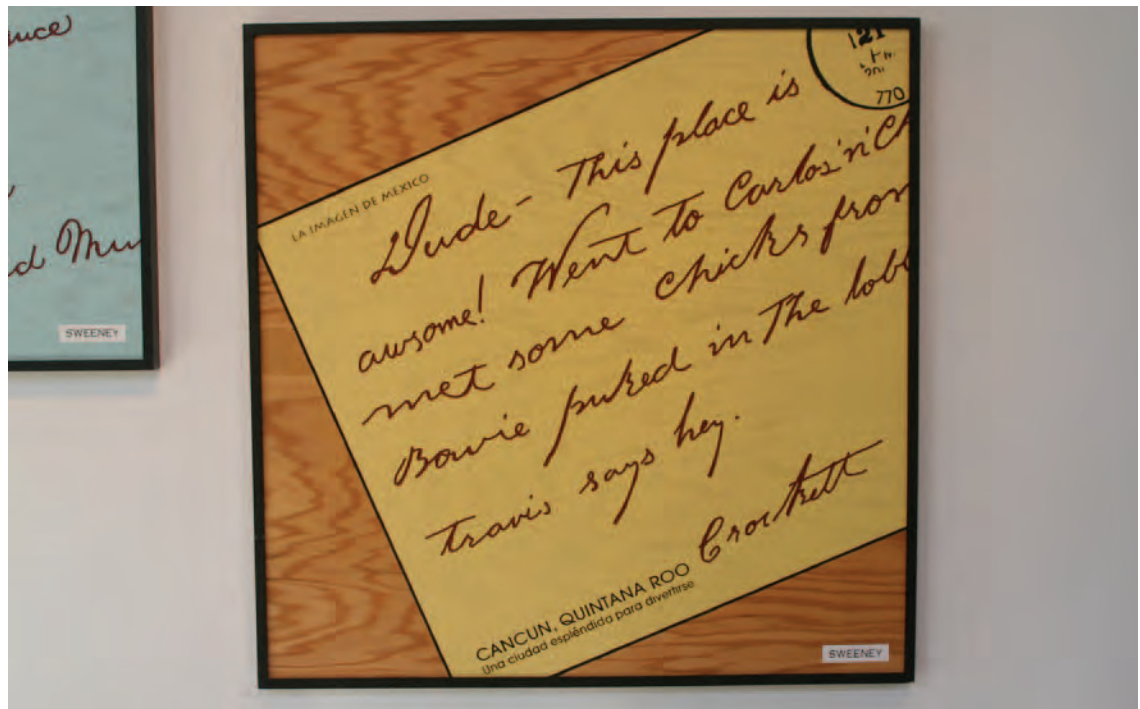 d Mu
SWEENEY
LA IMAGEN DE MEXICO
770
Dude- This place is
awsome! Went to Carlos'n'Ch
met some chicks from
Bowie puked in the lobb
travis says hey.
Crockett
CANCUN, QUINTANA ROO
Una ciudad espléndida para divertirse
SWEENEY